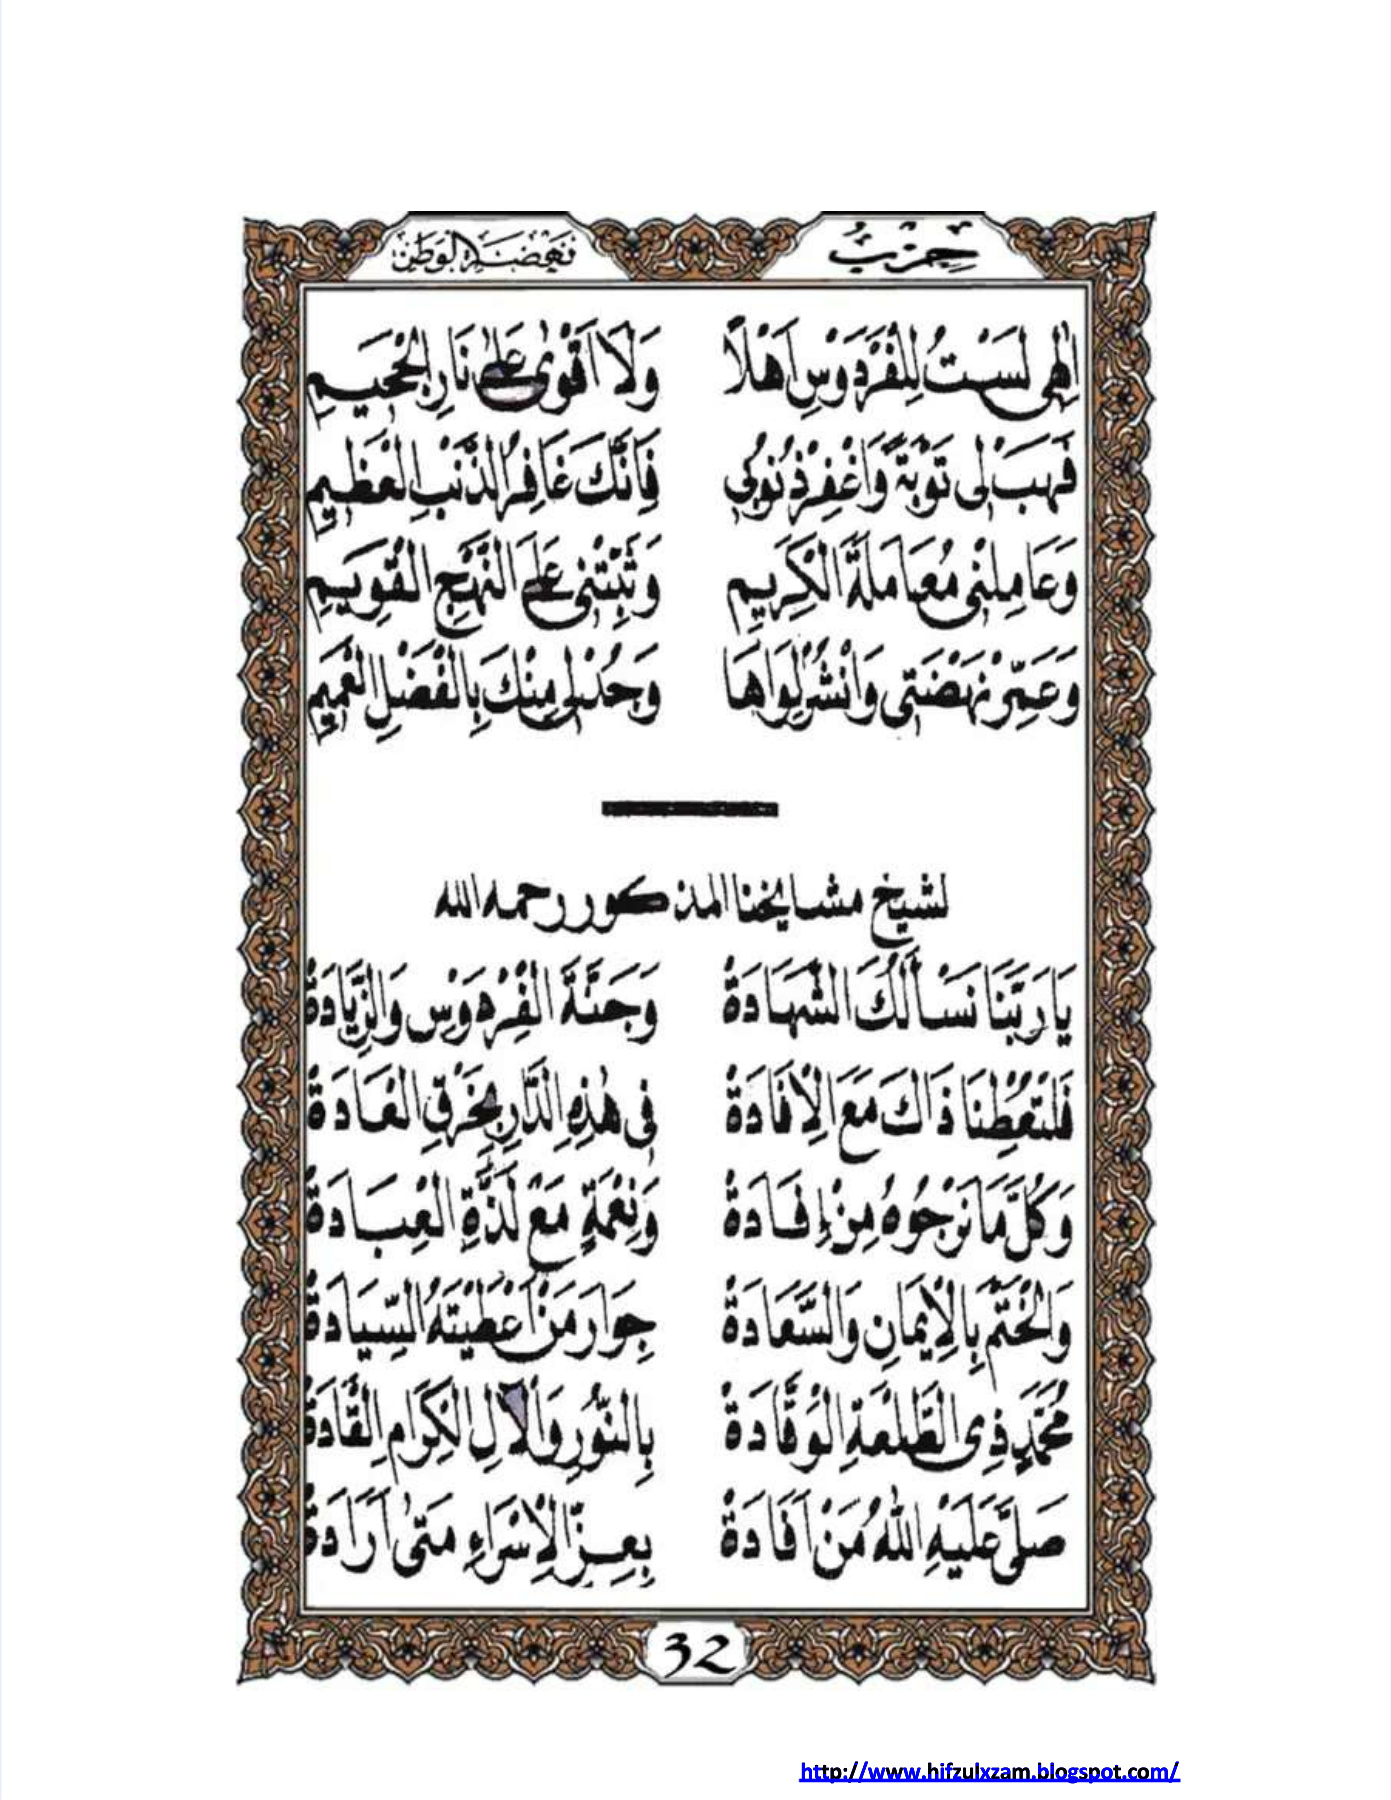 حِزْبُ نَهْضَةِ الْوَطَنْ
اِلٰهِى لَسْتُ لِلْفِرْدَوْسِ اَهْلًا وَلَا اَقْوٰى عَلٰى نَارِ الْجَحِيْمِ
فَهَبْ لِى تَوْبَةً وَاغْفِرْ ذُنُوْبِى فَاِنَّكَ غَافِرُ الذَّنْبِ الْعَظِيْمِ
وَعَامِلْنِى مُعَامَلَةَ الْكَرِيْمِ وَثَبِّتْنِى عَلَى النَّهْجِ الْقَوِيْمِ
وَعَمِّرْ نَهْضَتِى وَانْشُرْ لِوَاهَا وَجُدْ لِى مِنْكَ بِالْفَضْلِ الْعَمِيْمِ
لشيخ مشايخنا المذكور رحمه الله
يَا رَبَّنَا نَسْأَلُكَ الشَّهَادَةْ وَجَنَّةَ الْفِرْدَوْسِ وَالزِّيَادَةْ
فَلْتُعْطِنَا ذَاكَ مَعَ الْاِفَادَةْ فِى هٰذِهِ الدَّارِ بِخَرْقِ الْعَادَةْ
وَكُلَّ مَا نَرْجُوْهُ مِنْ إِفَادَةْ وَنِعْمَةٍ مَعْ لَذَّةِ الْعِبَادَةْ
وَالْخَتْمَ بِالْاِيْمَانِ وَالسَّعَادَةْ جِوَارَ مَنْ اَعْطَيْتَهُ السِّيَادَةْ
مُحَمَّدٍ ذِى الطَّلْعَةِ الْوَقَّادَةْ بِالنُّوْرِ وَالْاٰلِ الْكِرَامِ الْقَادَةْ
صَلَّى عَلَيْهِ اللهُ مَنْ اَفَادَهْ بِعِزِّ الْاِسْرَاءِ مَتٰى اَرَادَهْ
32
http://www.hifzulxzam.blogspot.com/